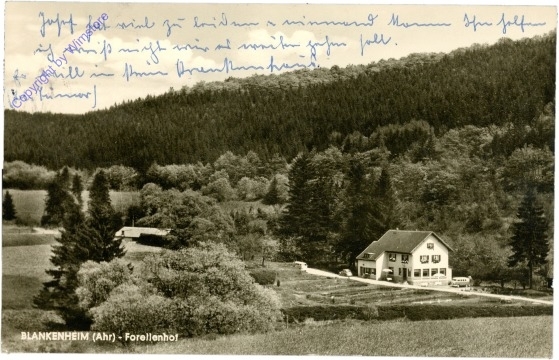 Josef hat viel zu leiden & niemand kann Ihn helfen
ich weiß nicht wie er weiter gehn soll.
Er will in kein Krankenhaus.
(Tumor)
Copyright by Wimstore
BLANKENHEIM (Ahr) - Forellenhof